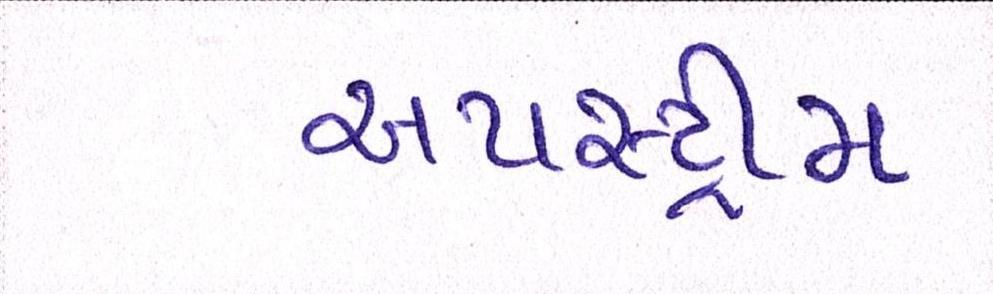 અપસ્ટ્રીમ